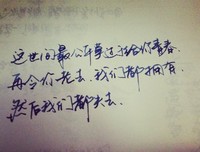 这世间最公平事过往给你青春
再令你老去.我们都拥有.
然后我们都失去.